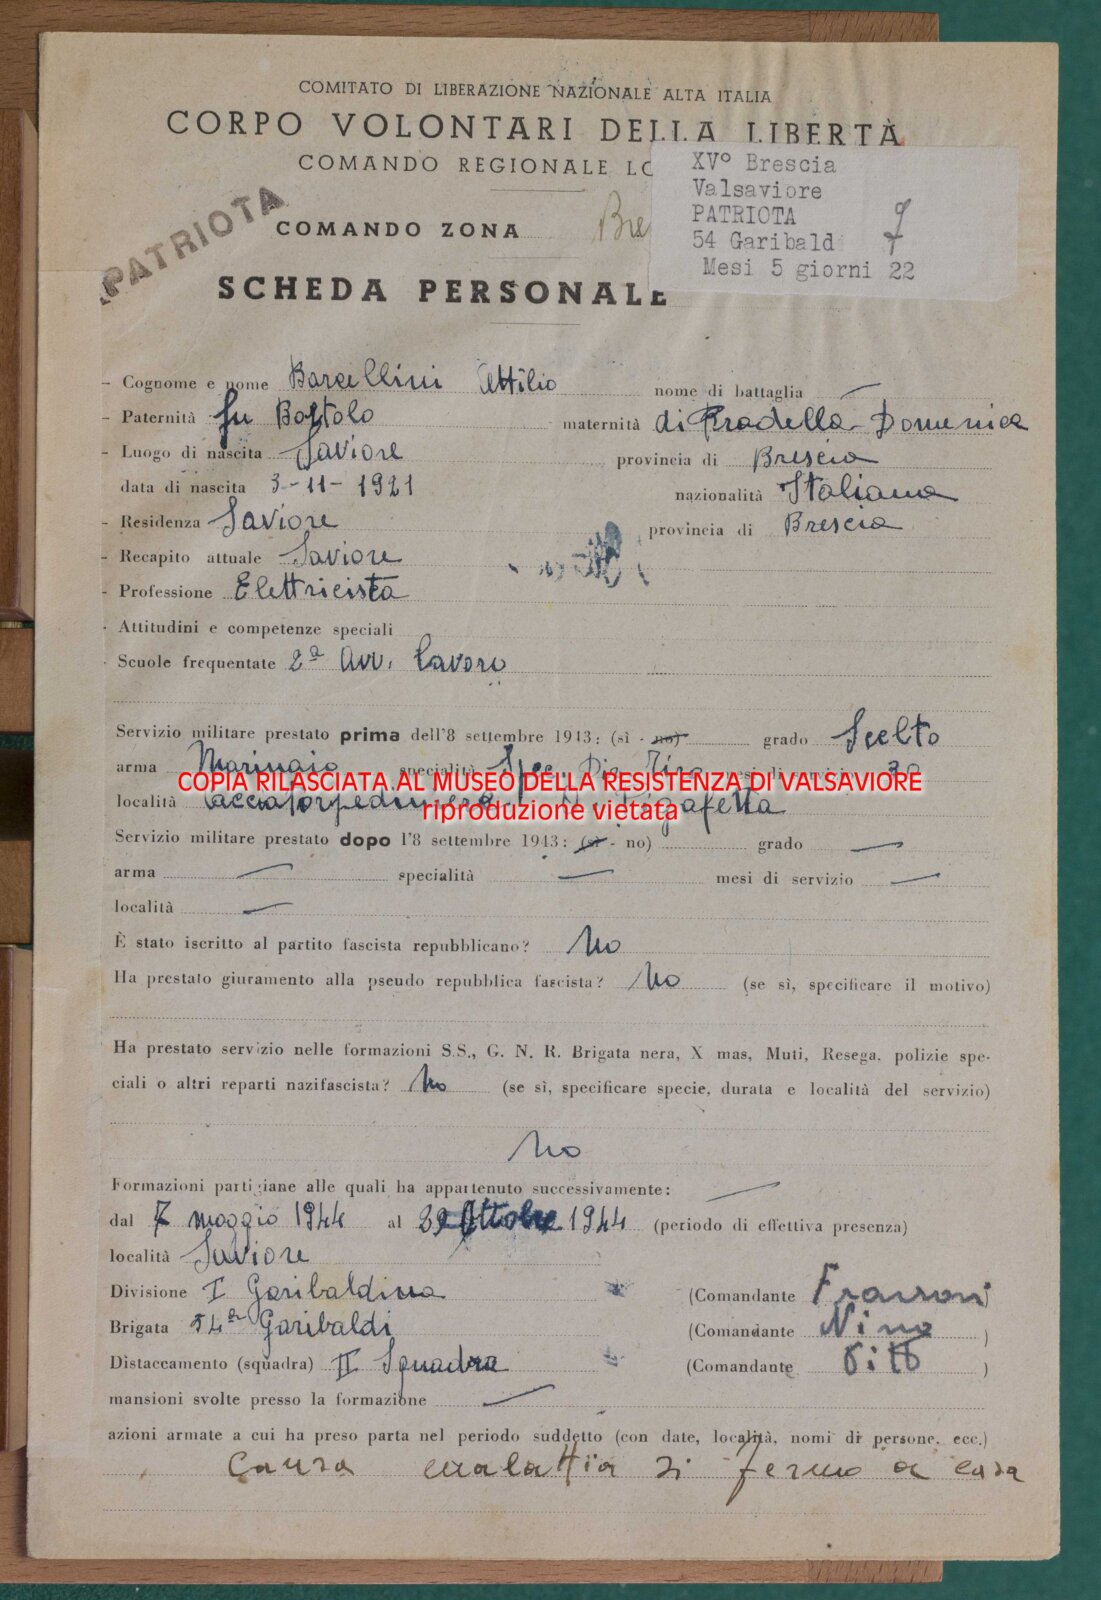 COMITATO DI LIBERAZIONE NAZIONALE ALTA ITALIA
CORPO VOLONTARI DELLA LIBERTÀ
COMANDO REGIONALE LO
XV° Brescia
Valsaviore
PATRIOTA
54 Garibald
Mesi 5 giorni 22
PATRIOTA
COMANDO ZONA Bre
SCHEDA PERSONALE
- Cognome e nome Barcellini Attilio nome di battaglia —
- Paternità fu Bortolo maternità di Pradella Domenica
- Luogo di nascita Saviore provincia di Brescia
data di nascita 3-11-1921 nazionalità Italiana
- Residenza Saviore provincia di Brescia
- Recapito attuale Saviore
- Professione Elettricista
- Attitudini e competenze speciali
- Scuole frequentate 2ª Avv. lavoro
Servizio militare prestato prima dell'8 settembre 1943: (sì - no) grado Scelto
arma Marinaio specialità Spec. Dir. Tiro mesi di servizio 30
COPIA RILASCIATA AL MUSEO DELLA RESISTENZA DI VALSAVIORE
località Cacciatorpediniera Pigafetta
riproduzione vietata
Servizio militare prestato dopo l'8 settembre 1943: (sì - no) grado —
arma — specialità — mesi di servizio —
località —
È stato iscritto al partito fascista repubblicano? No
Ha prestato giuramento alla pseudo repubblica fascista? No (se sì, specificare il motivo)
Ha prestato servizio nelle formazioni S.S., G. N. R. Brigata nera, X mas, Muti, Resega, polizie spe-
ciali o altri reparti nazifascista? No (se sì, specificare specie, durata e località del servizio)
No
Formazioni partigiane alle quali ha appartenuto successivamente: —
dal 7 maggio 1944 al 29 Ottobre 1944 (periodo di effettiva presenza)
località Saviore
Divisione I Garibaldina (Comandante )
Brigata 54ª Garibaldi (Comandante Nino )
Distaccamento (squadra) II Squadra (Comandante )
mansioni svolte presso la formazione —
azioni armate a cui ha preso parta nel periodo suddetto (con date, località, nomi di persone, ecc.)
Causa malattia si fermo a casa